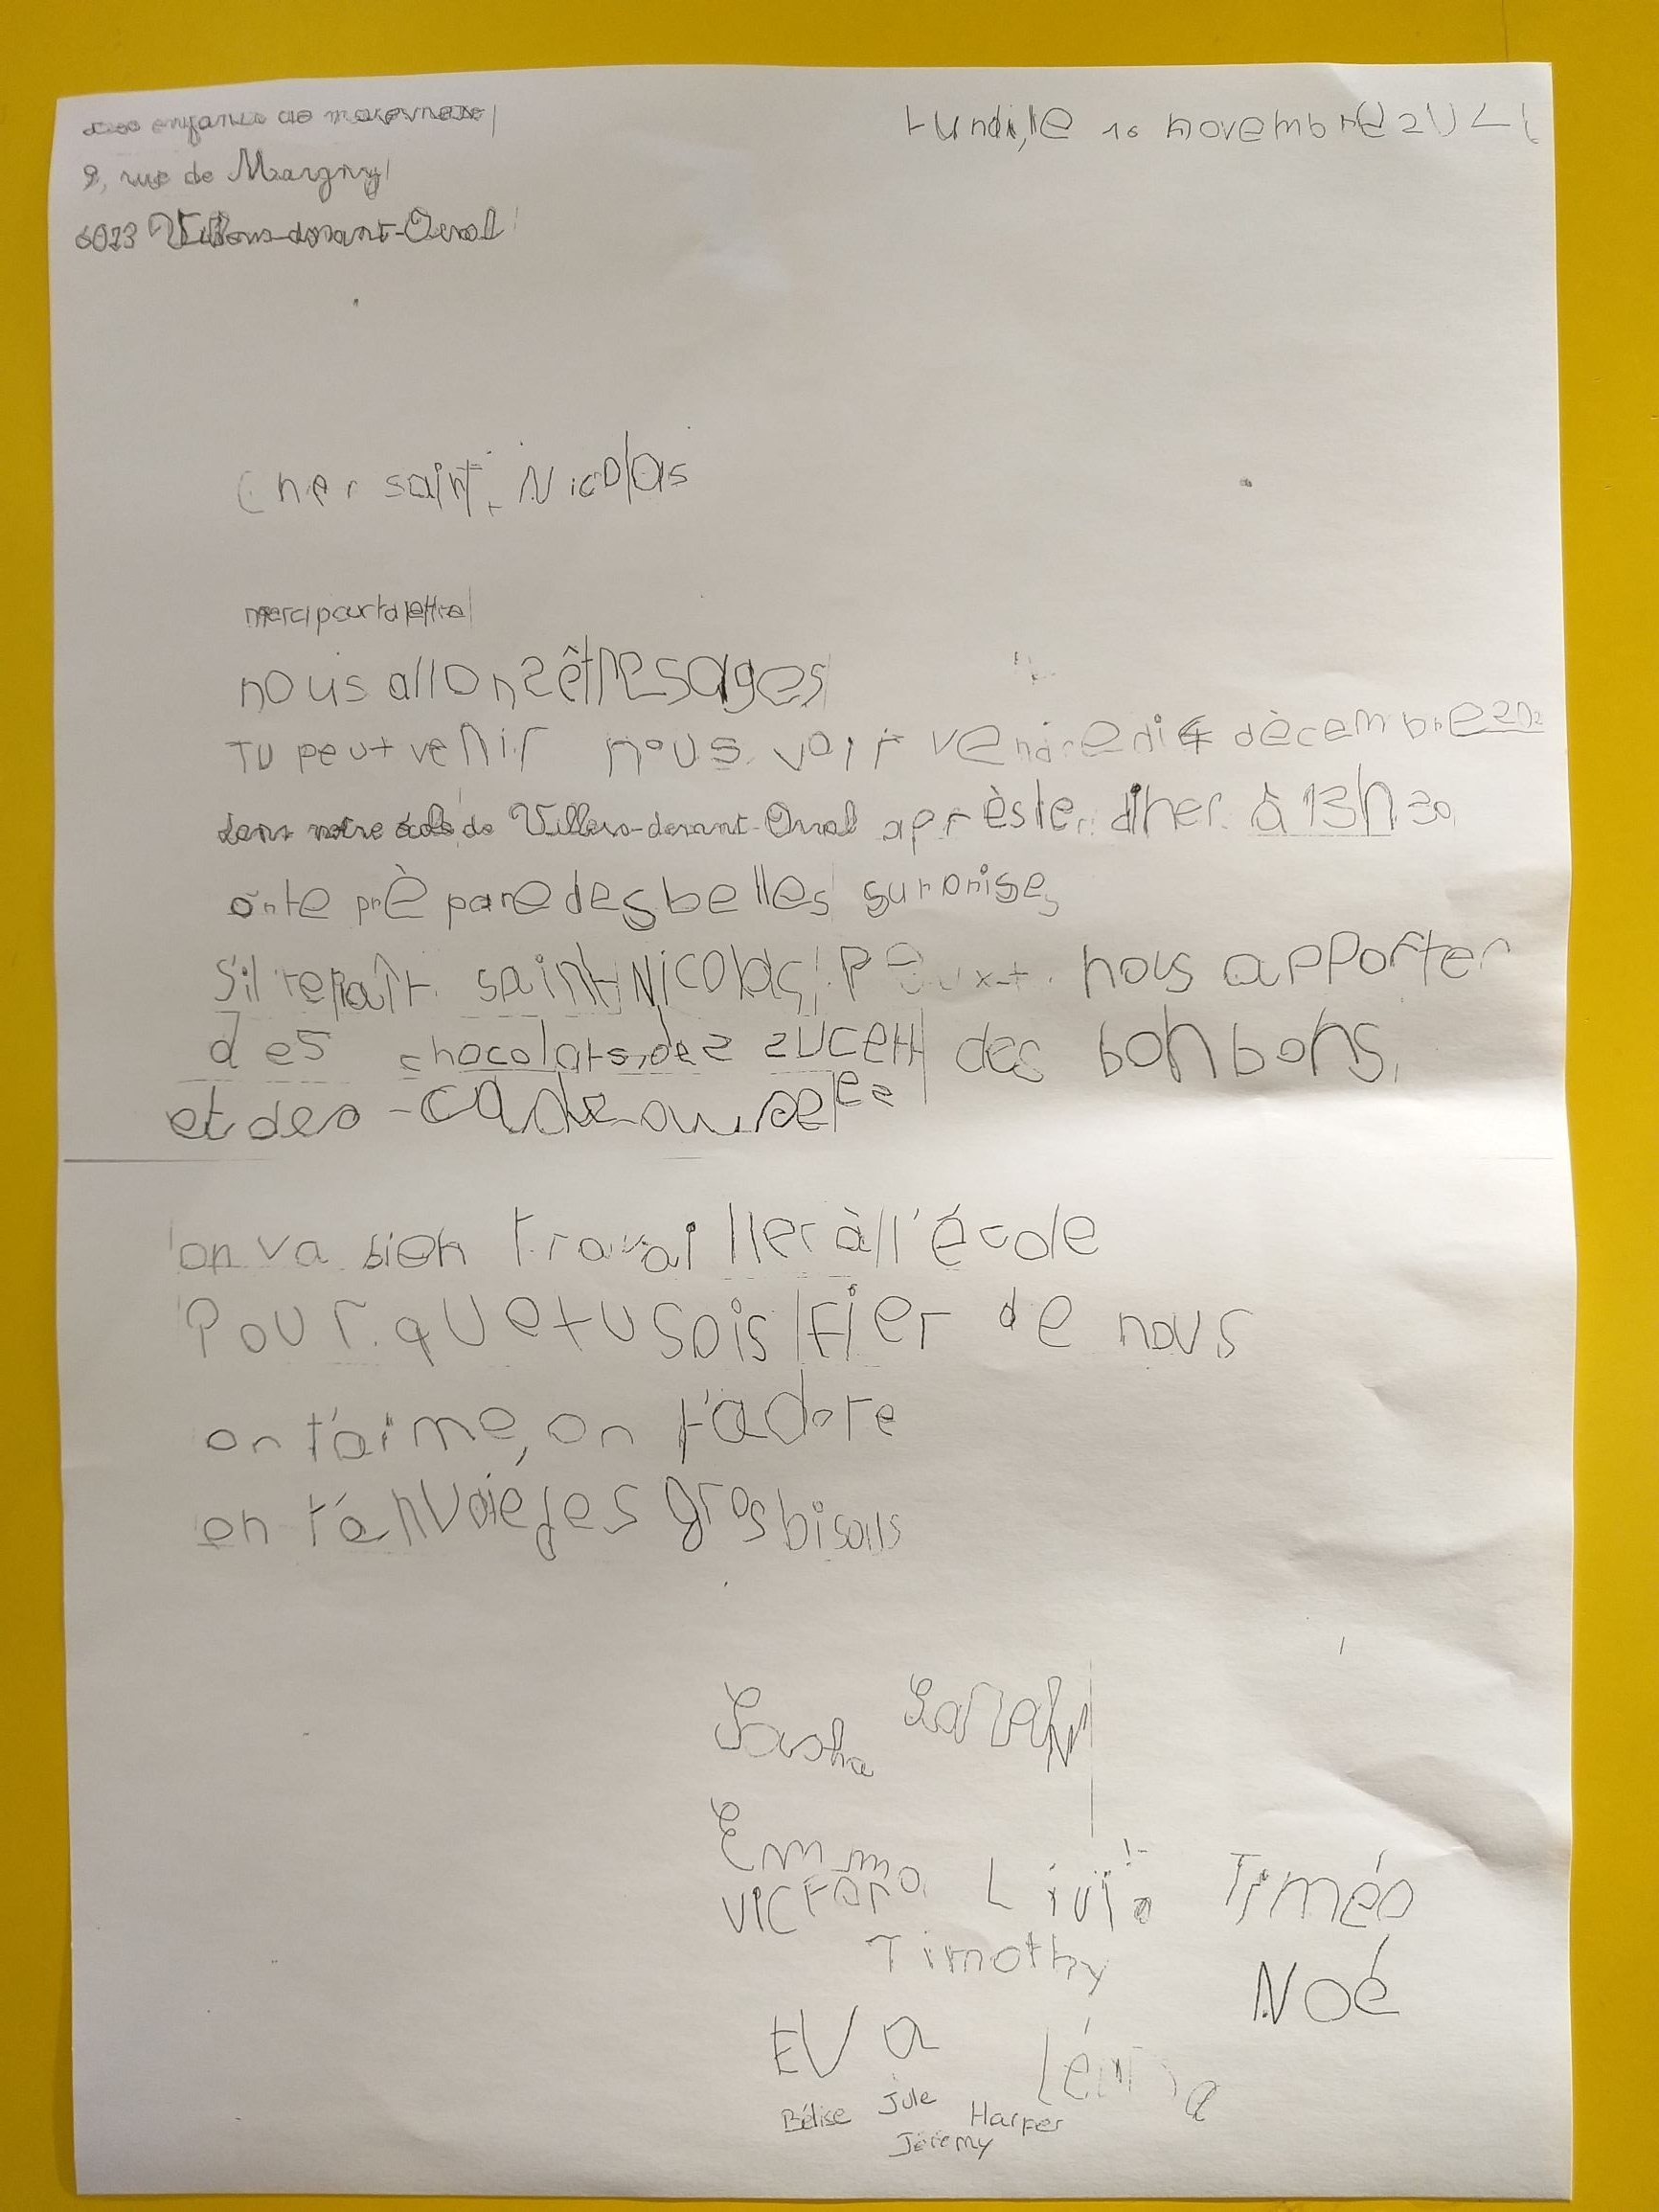 Les enfants de maternelle
9, rue de Margny
6823 Villers-devant-Orval
Lundi, le 16 novembre
Cher saint Nicolas
merci pour ta lettre
nous allons être sages
Tu peut venir nous voir vendredi 4 dècembre 202
dans notre école de Villers-devant-Orval après le dîner à 13h30
on te prèpare des belles surprises
s'il te plaît saint Nicolas, peux-t. nous apporter
des chocolats, des sucett des bonbons,
et des cadeaux
on va bien travailler à l'école
Pour que tu sois fier de nous
on t'aime, on t'adore
on t'envoie des gros bisous
Sasha
Emma
Livia Timéo
Timothy
Noé
EVa
Bélise Jule Harper
Jérémy